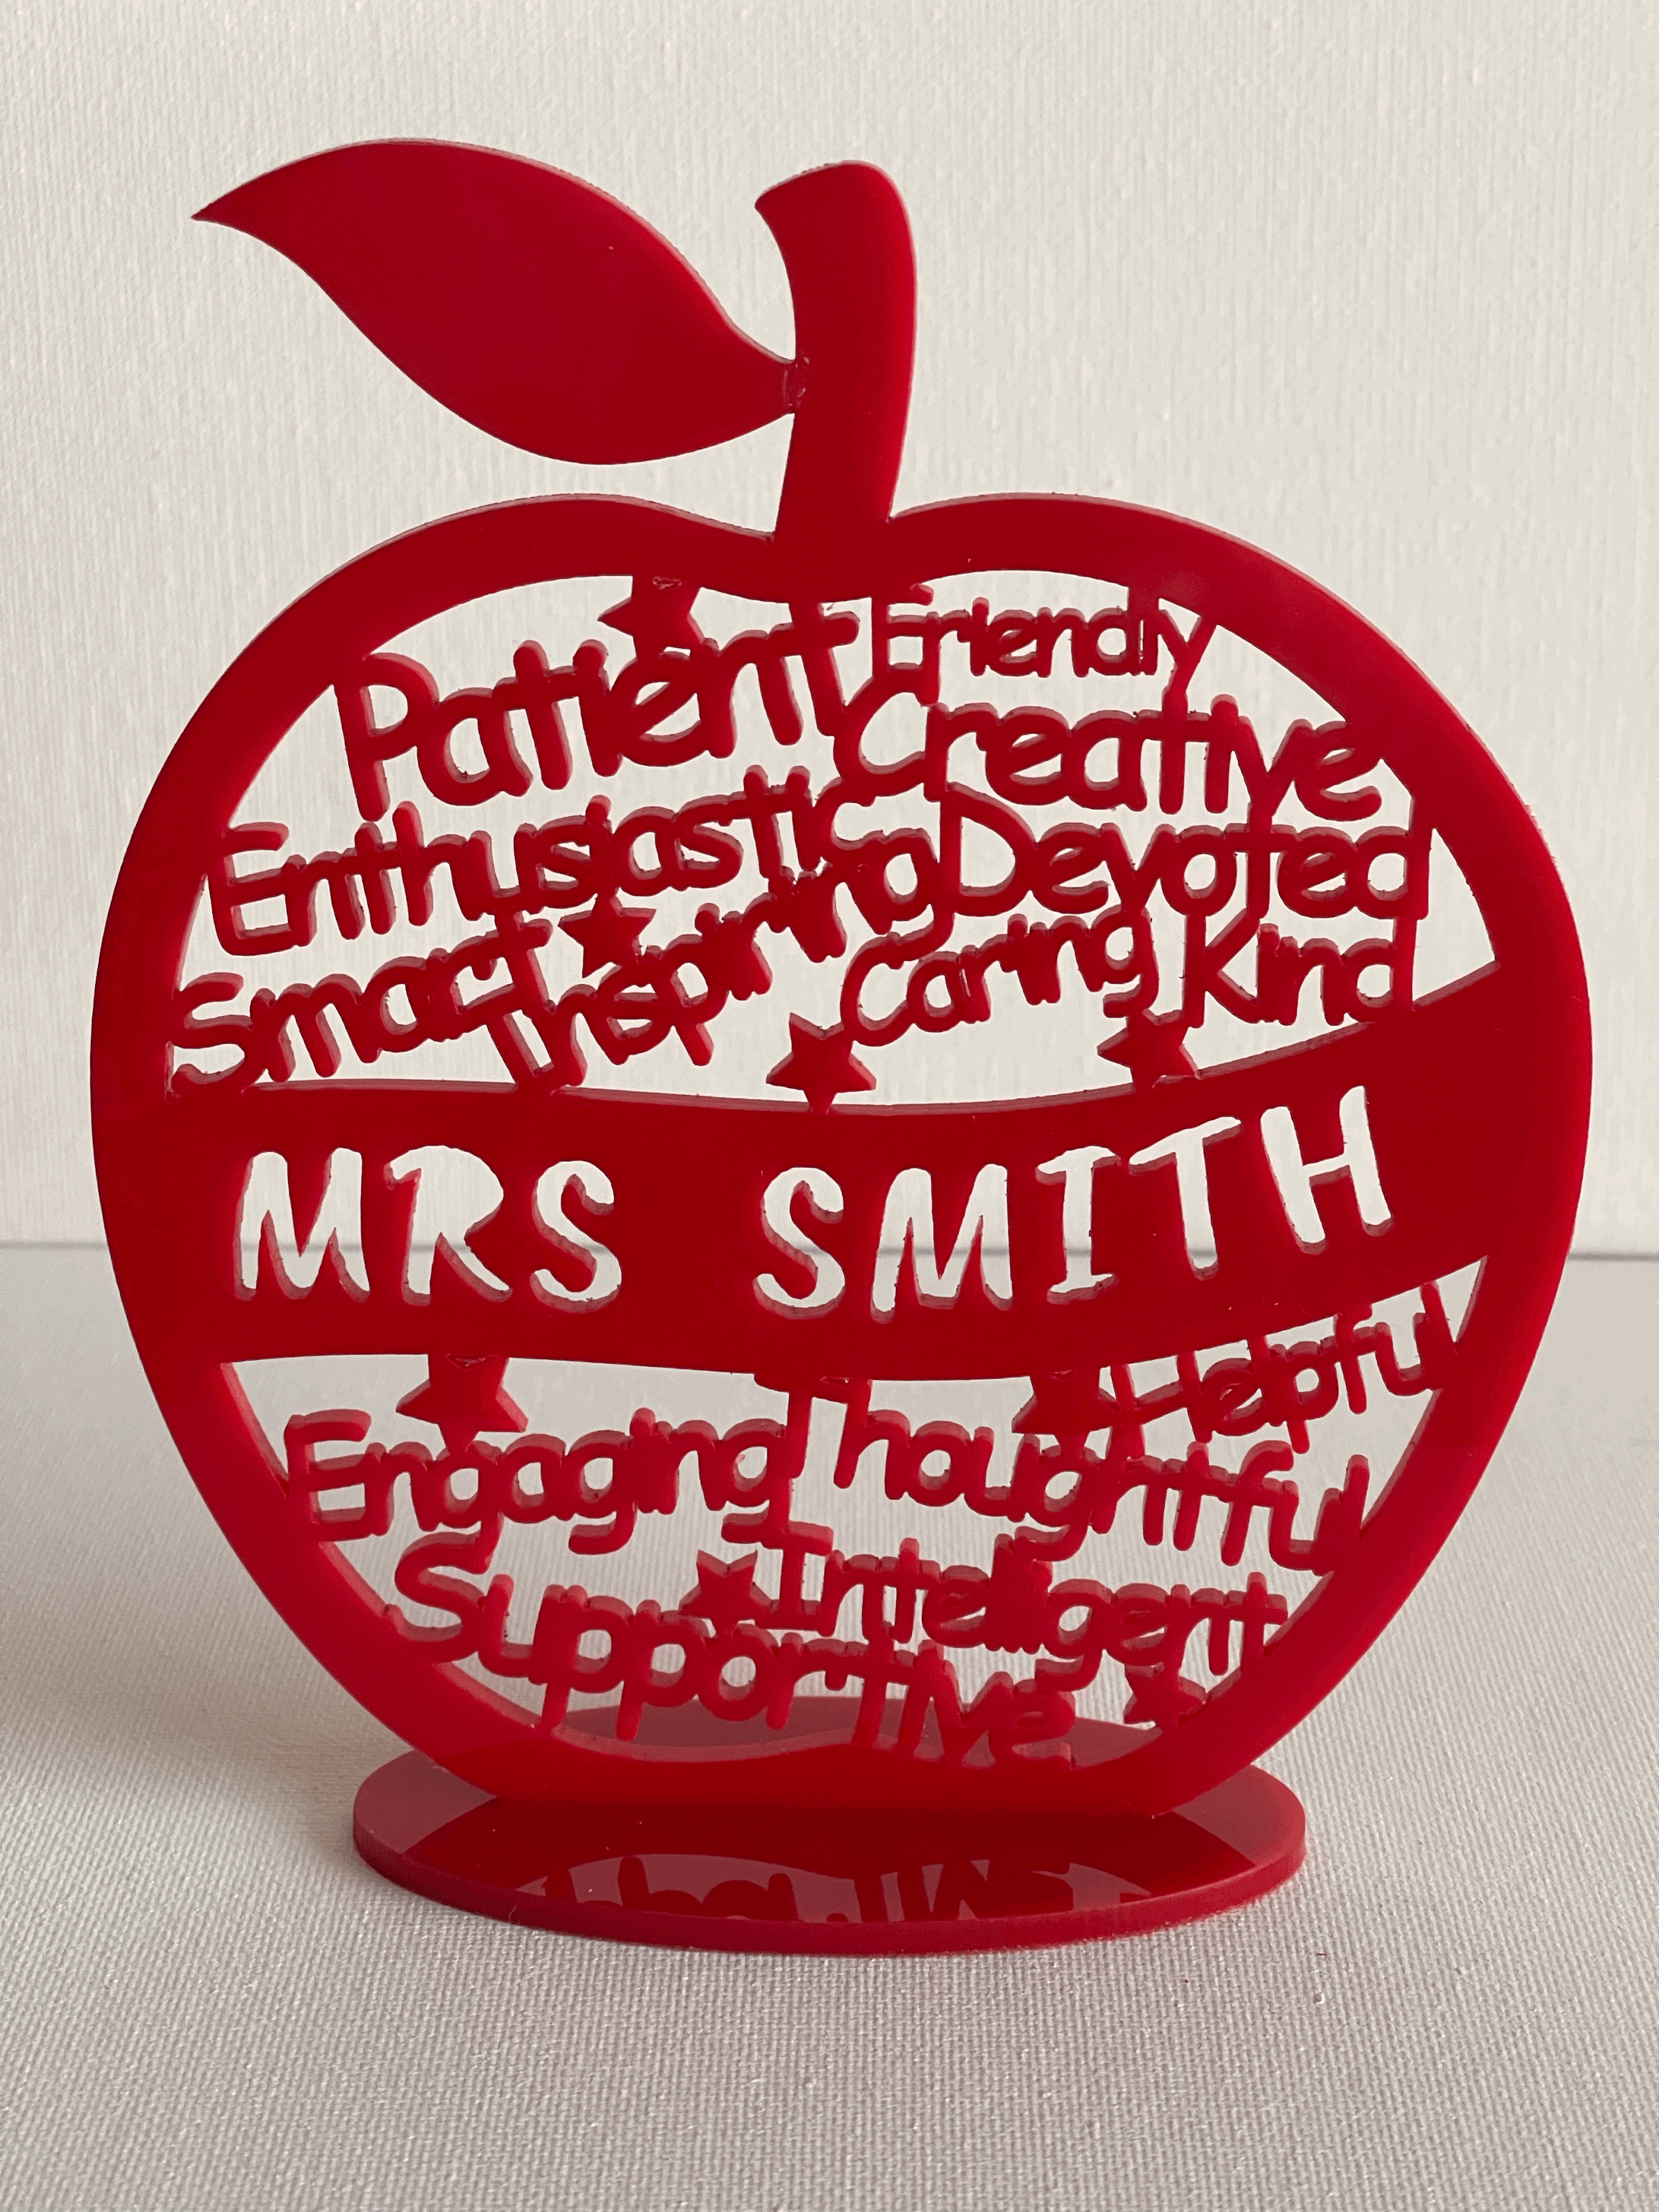 Patient Friendly
Creative
Enthusiastic Devoted
Smart Inspiring Caring Kind
MRS SMITH
Helpful
Engaging Thoughtful
Intelligent
Supportive